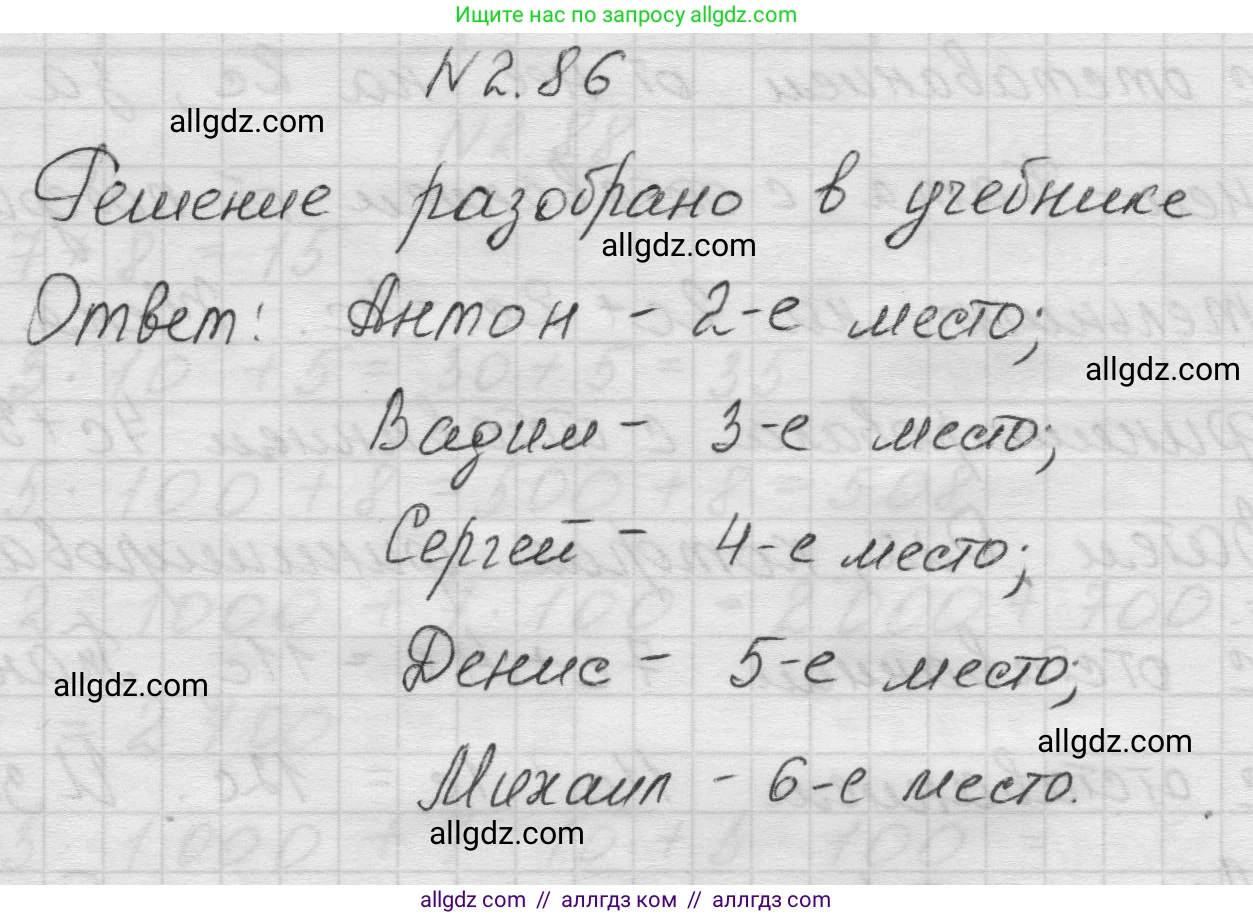 Ищите нас по запросу allgdz.com
N 2.86
allgdz.com
Решение разобрано в учебнике
allgdz.com
Ответ: Антон - 2-е место;
allgdz.com
Вадим - 3-е место;
Сергей - 4-е место;
Денис - 5-е место;
allgdz.com
allgdz.com
Михаил - 6-е место.
allgdz.com
allgdz com // аллгдз ком // аллгдз.com